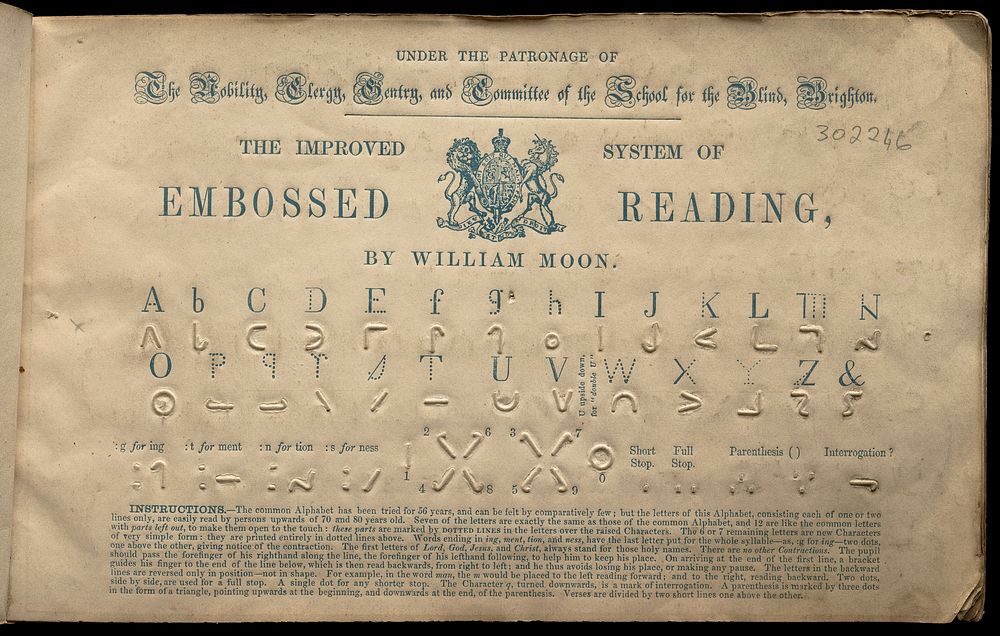 UNDER THE PATRONAGE OF
The Nobility, Clergy, Gentry, and Committee of the School for the Blind, Brighton.
302246
THE IMPROVED SYSTEM OF
EMBOSSED READING,
BY WILLIAM MOON.
A b C D E f g h I J K L m N
O P q r / T U V U upside down, for "double U" W X Y Z &
:g for ing :t for ment :n for tion :s for ness
2 6 3 7
Short Stop. Full Stop. Parenthesis () Interrogation ?
1 4 8 5 9 0
INSTRUCTIONS.—The common Alphabet has been tried for 56 years, and can be felt by comparatively few; but the letters of this Alphabet, consisting each of one or two
lines only, are easily read by persons upwards of 70 and 80 years old. Seven of the letters are exactly the same as those of the common Alphabet, and 12 are like the common letters
with parts left out, to make them open to the touch: these parts are marked by DOTTED LINES in the letters over the raised Characters. The 6 or 7 remaining letters are new Characters
of very simple form: they are printed entirely in dotted lines above. Words ending in ing, ment, tion, and ness, have the last letter put for the whole syllable—as, :g for ing—two dots,
one above the other, giving notice of the contraction. The first letters of Lord, God, Jesus, and Christ, always stand for those holy names. There are no other Contractions. The pupil
should pass the forefinger of his righthand along the line, the forefinger of his lefthand following, to help him to keep his place. On arriving at the end of the first line, a bracket
guides his finger to the end of the line below, which is then read backwards, from right to left; and he thus avoids losing his place, or making any pause. The letters in the backward
lines are reversed only in position—not in shape. For example, in the word man, the m would be placed to the left reading forward; and to the right, reading backward. Two dots,
side by side, are used for a full stop. A single dot for any shorter stop. The Character q, turned downwards, is a mark of interrogation. A parenthesis is marked by three dots
in the form of a triangle, pointing upwards at the beginning, and downwards at the end, of the parenthesis. Verses are divided by two short lines one above the other.